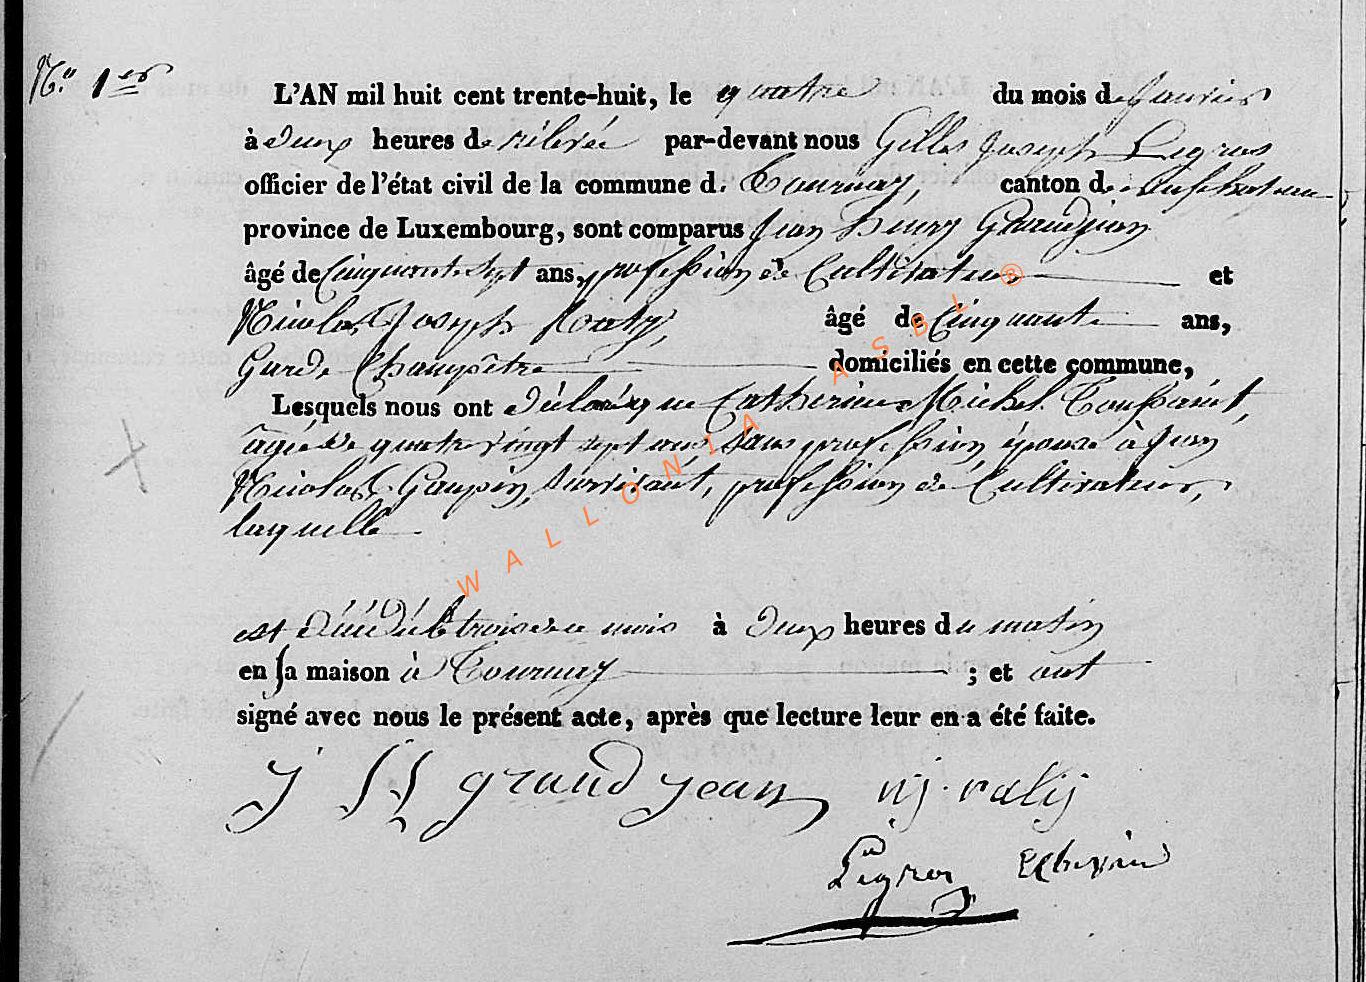 N.° 1er
L'AN mil huit cent trente-huit, le quatre du mois de Janvier
à deux heures de rélévée par-devant nous Gilles Joseph Legros
officier de l'état civil de la commune de Tournay, canton de neufchateau
province de Luxembourg, sont comparus Jean henry Grandjean
âgé de Cinquante sept ans, profession de Cultivateur et
Nicolas Joseph âgé de Cinquante ans,
Garde Champêtre domiciliés en cette commune,
Lesquels nous ont déclaré que Catherine Michel Toussaint,
agée de quatre vingt sept ans sans profession épouse à Jean
Nicolas Gaupin, survivant, profession de Cultivateur,
laquelle
est décédé le trois de ce mois à deux heures du matin
en sa maison à Tournay ; et ont
signé avec nous le présent acte, après que lecture leur en a été faite.
j h grand jean nj.
Legros Echevin
WALLONIA ASBL ®